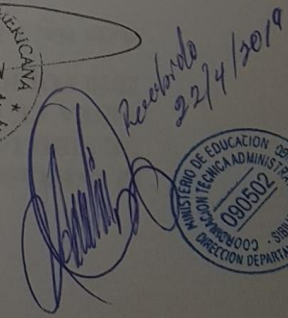 ERICANA *
Recibido
22/4/2019
MINISTERIO DE EDUCACION
COORDINACION TECNICA ADMINISTRA
090502
DIRECCION DEPARTA